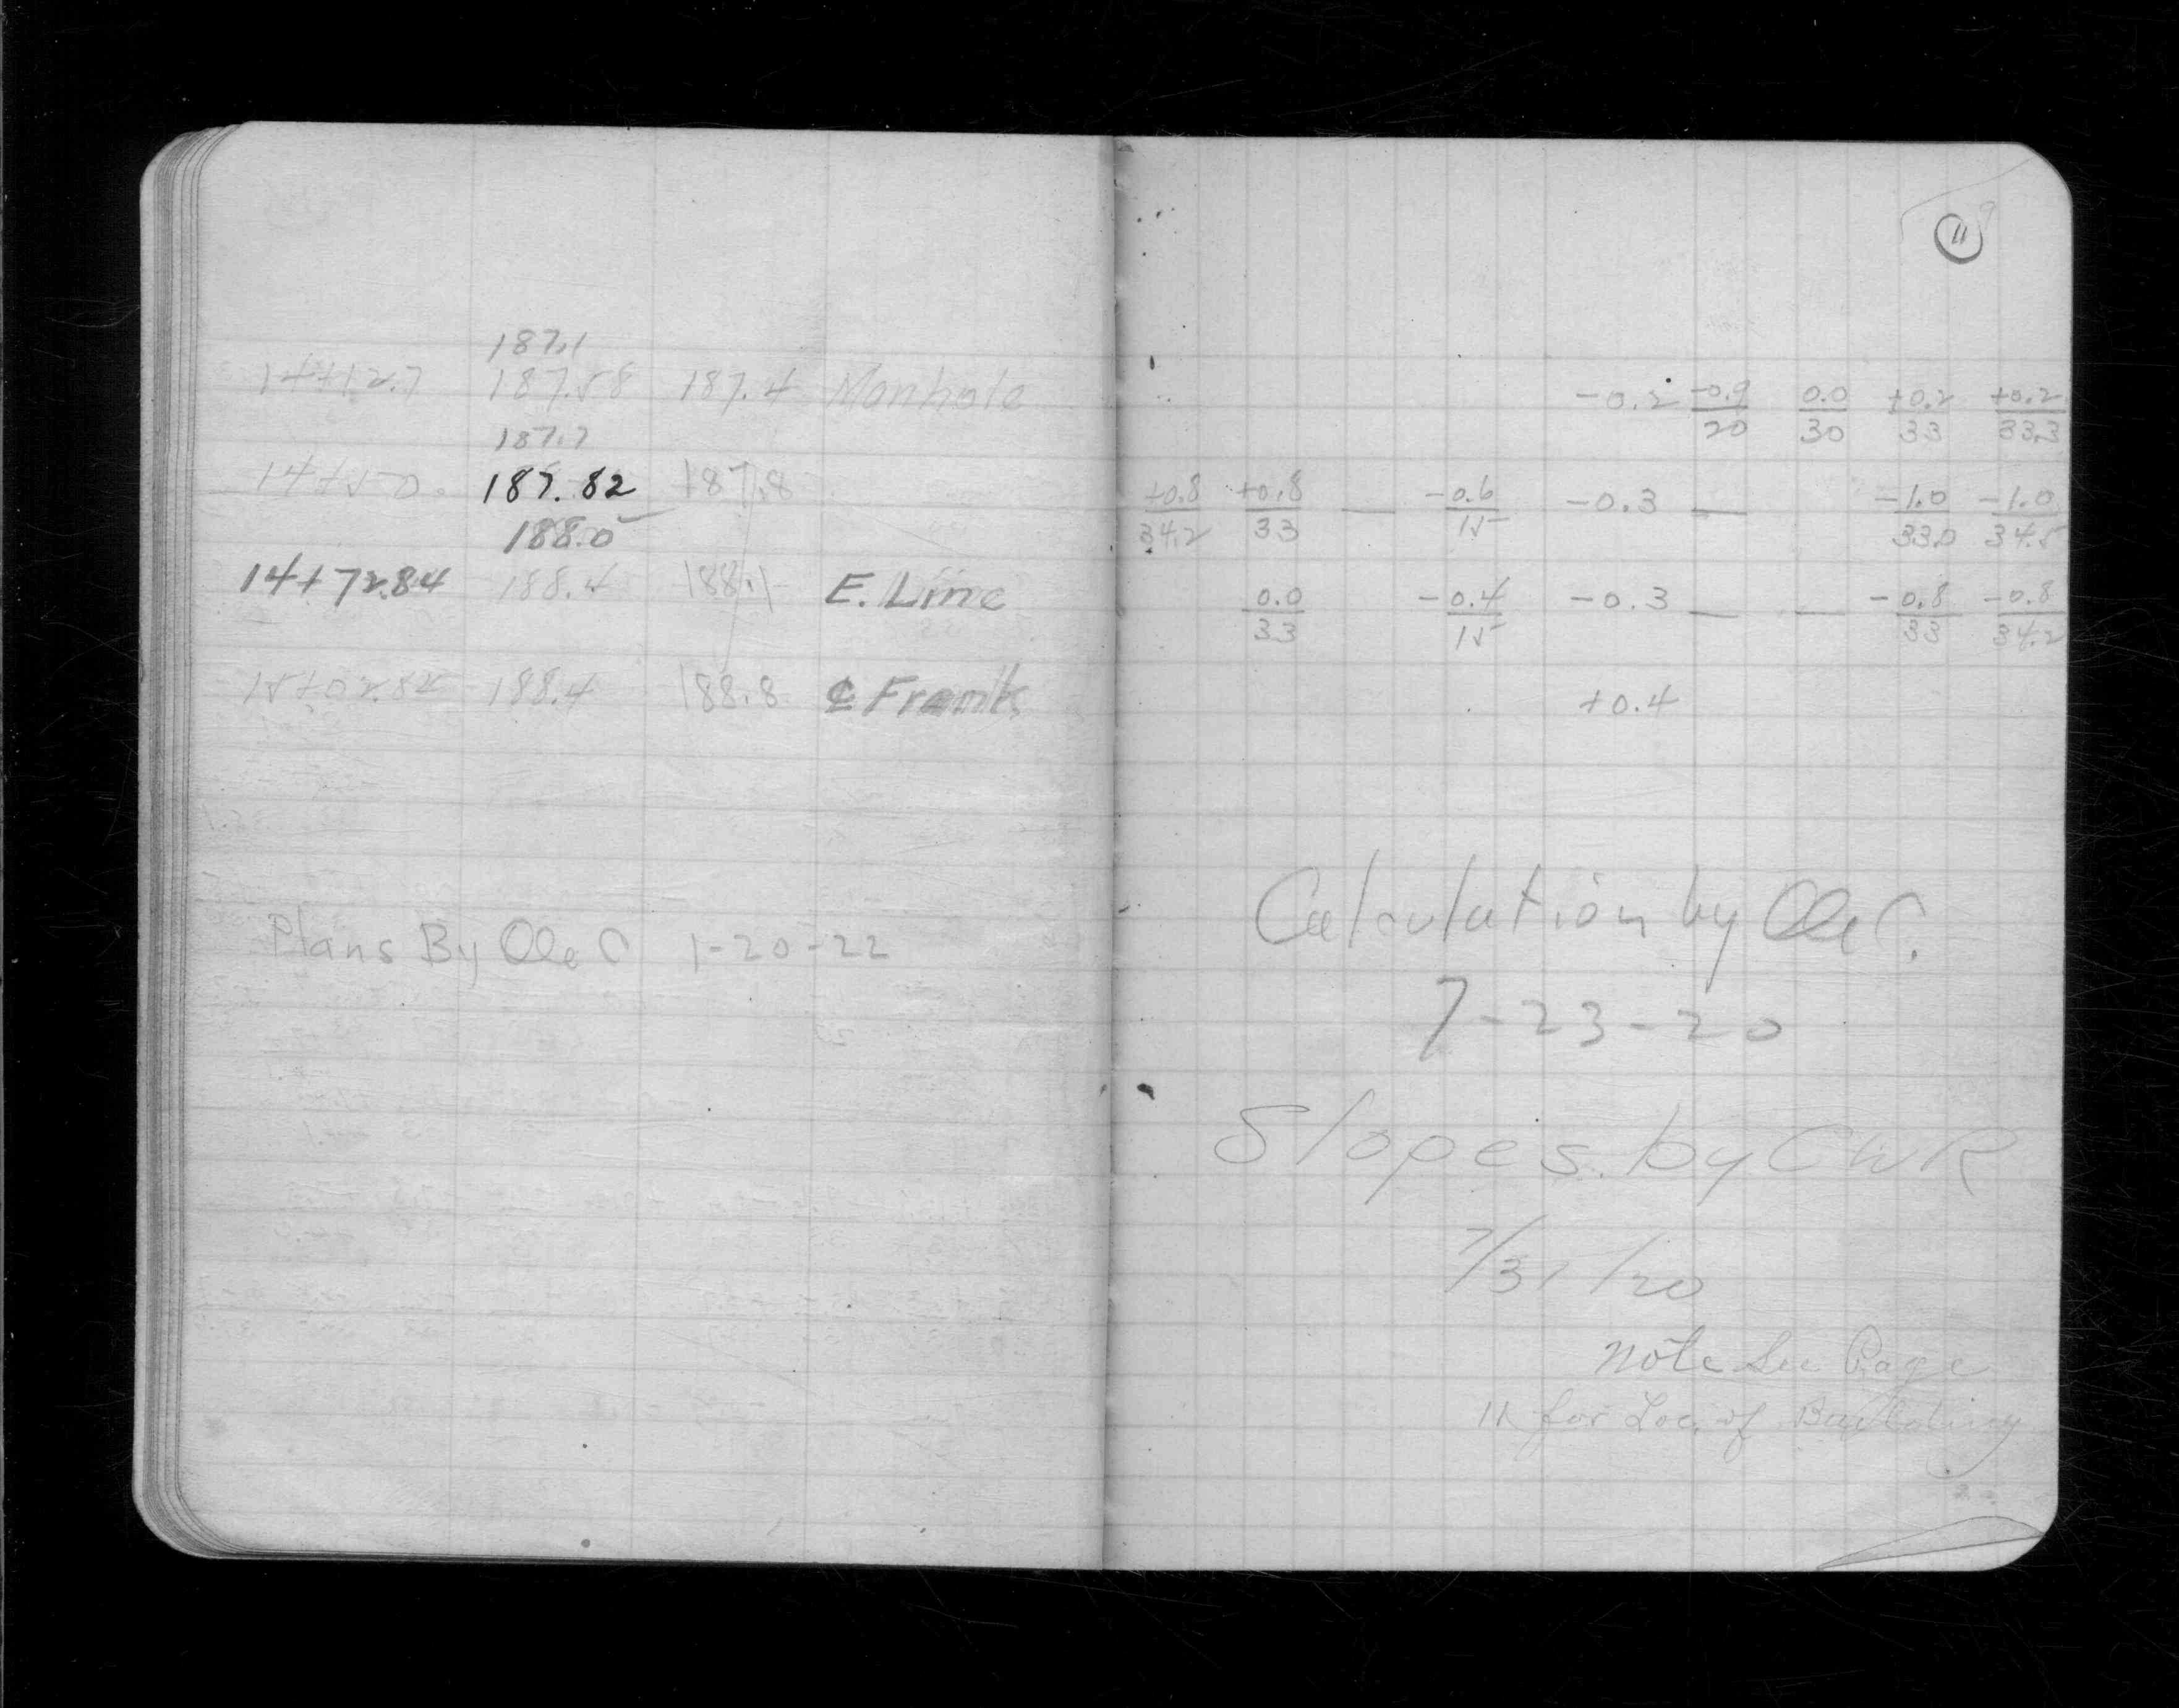 187.1
14+12.7 187.58 187.4 Manhole
187.7
14+50. 187.82 187.8
188.0
14+72.84 188.4 188.1 E. Line
15+02.82 188.4 188.8 ℄ Frank
Plans By 1-20-22
11
-0.2 -0.9/20 0.0/30 +0.2/33 +0.2/33.3
+0.8/34.2 +0.8/33 — -0.6/15 -0.3 — -1.0/33.0 -1.0/34.5
0.0/33 -0.4/15 -0.3 — — -0.8/33 -0.8/34.2
+0.4
Calculation by
7-23-20
Slopes by CWR
7/31/20
Note See Page
11 for Loc. of